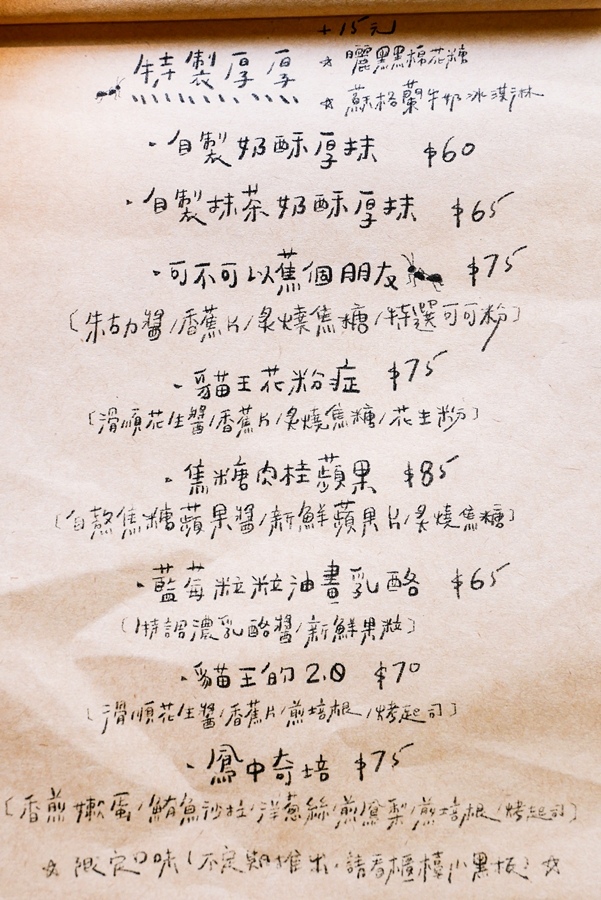 +15元
特製厚厚 ☆曬黑黑棉花糖
☆蘇格蘭牛奶冰淇淋
·自製奶酥厚抹 $60
·自製抹茶奶酥厚抹 $65
·可不可以蕉個朋友 $75
〔朱古力醬/香蕉片/炙燒焦糖/特選可可粉〕
·貓王花粉症 $75
〔滑順花生醬/香蕉片/炙燒焦糖/花生粉〕
·焦糖肉桂蘋果 $85
〔自熬焦糖蘋果醬/新鮮蘋果片/炙燒焦糖〕
·藍莓粒粒油畫乳酪 $65
〔特調濃乳酪醬/新鮮果粒〕
·貓王的2.0 $70
〔滑順花生醬/香蕉片/煎培根/烤起司〕
·鳳中奇培 $75
〔香煎嫩蛋/鮪魚沙拉/洋蔥絲/煎鳳梨/煎培根/烤起司〕
☆限定口味(不定期推出,請看櫃檯小黑板)☆